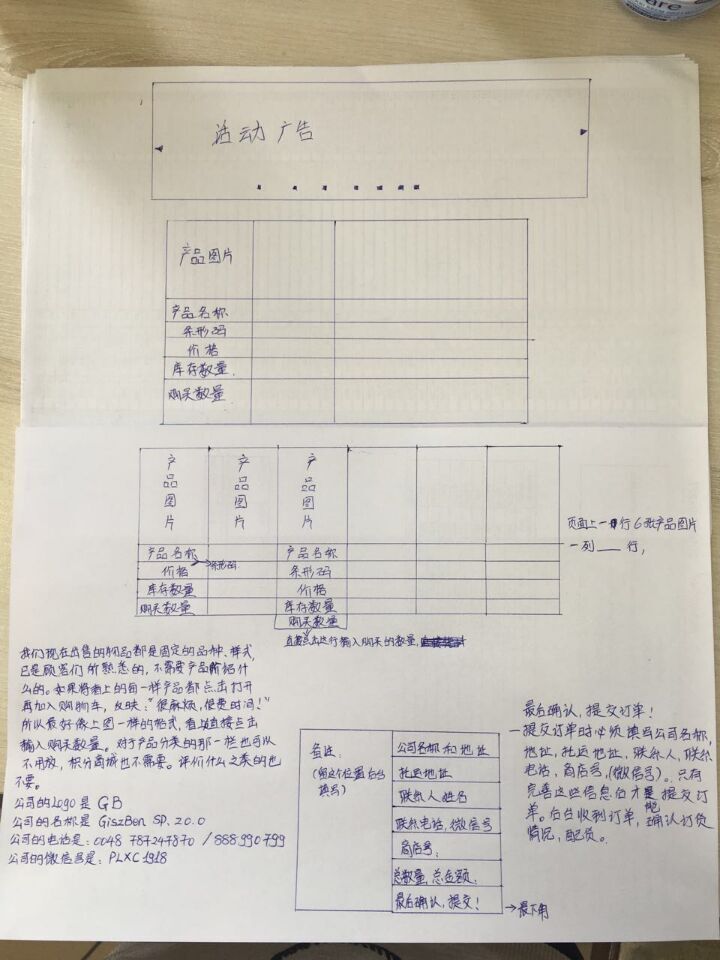 are
活动广告
产品图片
产品名称
条形码
价格
库存数量
购买数量
产品图片
产品图片
产品图片
产品名称
价格
库存数量
购买数量
条形码
产品名称
条形码
价格
库存数量
购买数量
直接点击这行输入购买的数量,
页面上一行6张产品图片
一列___行,
我们现在出售的物品都是固定的品种、样式,
已是顾客们所熟悉的,不需要产品介绍什
么的。如果将者上的每一样产品都点击打开
再加入购物车,反映:“很麻烦,很费时间!”
所以最好像上图一样的格式,直接点击
输入购买数量。对于产品分类的那一栏也可以
不用放,积分商城也不需要。评价什么之类的也
不要。
公司的Logo是 GB
公司的名称是 GiszBen SP. Z o.o
公司的电话是:0048 787247870 / 888990799
公司的微信号是:PLXC1918
备注:
(留这个位置后台
填写)
公司名称和地址
托运地址
联系人姓名
联系电话,微信号
商店号:
总数量,总金额:
最后确认,提交!
→最下角
最后确认,提交订单!
一提交订单时必须填写公司名称,
地址,托运地址,联系人,联系
电话,商店号,(微信号)。只有
完善这些信息后才能提交订
单。后台收到订单,确认订货
情况,配货。